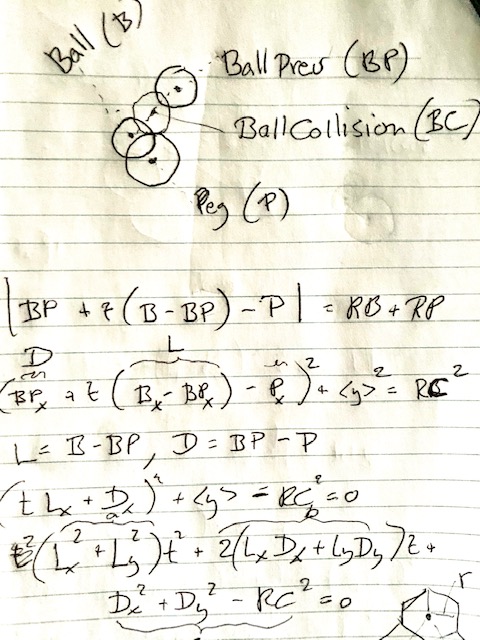 Ball (B)
Ball Prev (BP)
Ball Collision (BC)
Peg (P)
|BP + t(B - BP) - P| = RB + RP
D
L
(BPx + t(Bx - BPx) - Px)² + <y>² = RC²
L = B - BP, D = BP - P
(t Lx + Dx)² + <y> = RC² = 0
a
b
(Lx² + Ly²)t² + 2(LxDx + LyDy)t +
Dx² + Dy² - RC² = 0
r